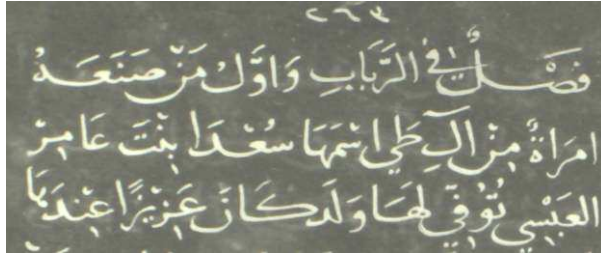 ٢٦٣
فَصْلٌ فِي الرَّبَابِ وَاَوَّلُ مَنْ صَنَعَهُ
امرَاةٌ مِنْ اَلِ طَي اسْمَهَا سُعْدَا بِنْتَ عَامِرْ
العَبْسِي تُوُفِّي لهَا وَلَد كَانَ عَزِيْزًا عِنْدَهَا